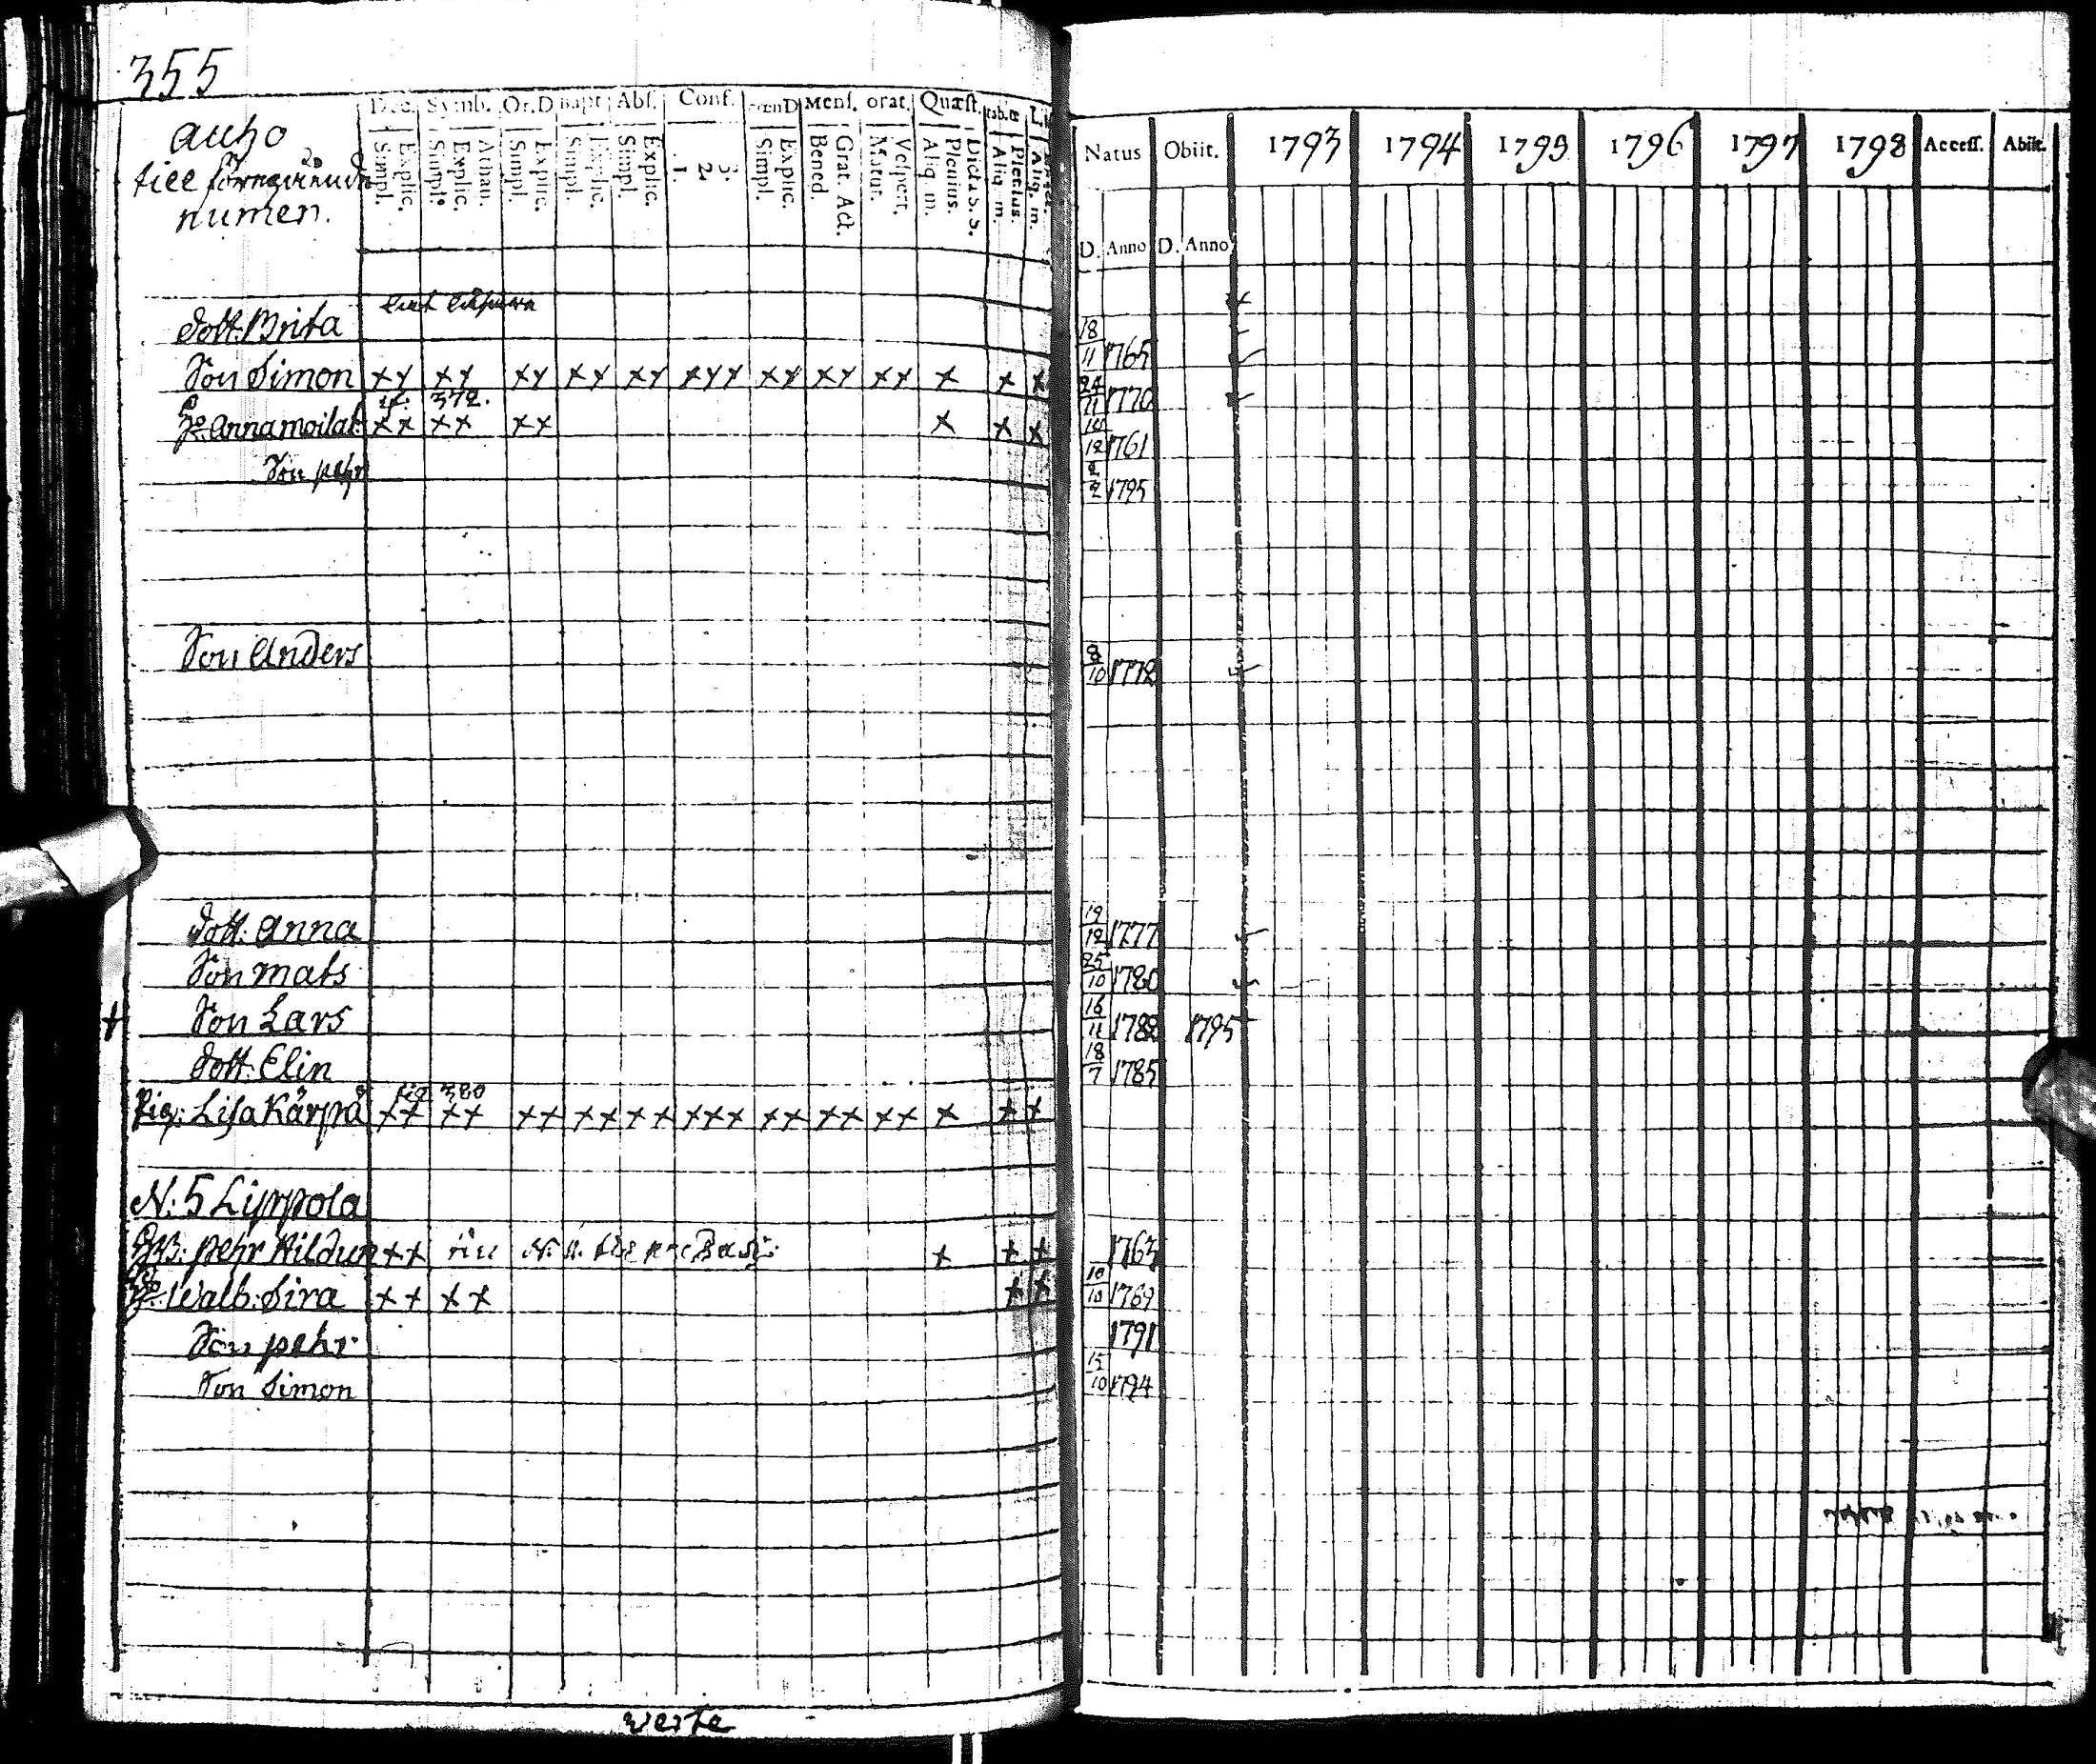 355
Aucho
till föregående
numen.
Dec. Symb. Or.D Bapt. Abs. Conf. Mens. orat. Quæst. Natus Obiit. 1793 1794 1795 1796 1797 1798 Access. Abiit.
Simpl. Explic. Simpl. Explic. Athan. Simpl. Explic. Simpl. Explic. Simpl. Explic. 1. 2. 3. Simpl. Explic. Bened. Grat. Act. Matut. Vespert. Aliq. m. Plenius. Dicta S. S. Aliq. m. Plenius. Aliq. m.
D. Anno D. Anno
Dott. Brita 18/11 1765
Son Simon xx xx xx xx xx xxx xx xx xx x x x 24/11 1770
372.
H. Anna Moilat xx xx xx x x x 12 1761
Son Pehr 2/2 1795
Son Anders 8/10 1772
Dott. Anna 19/12 1777
Son Mats 25/10 1780
+ Son Lars 16/11 1782 1795
Dott. Elin 18/7 1785
380
Pig: Lisa Kärpä xx xx xx xx xx xxx xx xx xx x x x
N: 5 Lippola
Pehr Hildun xx x x x 1763
Walb: Sira xx xx x x 10/10 1769
Son Pehr 1791
Son Simon 15/10 1794
verte